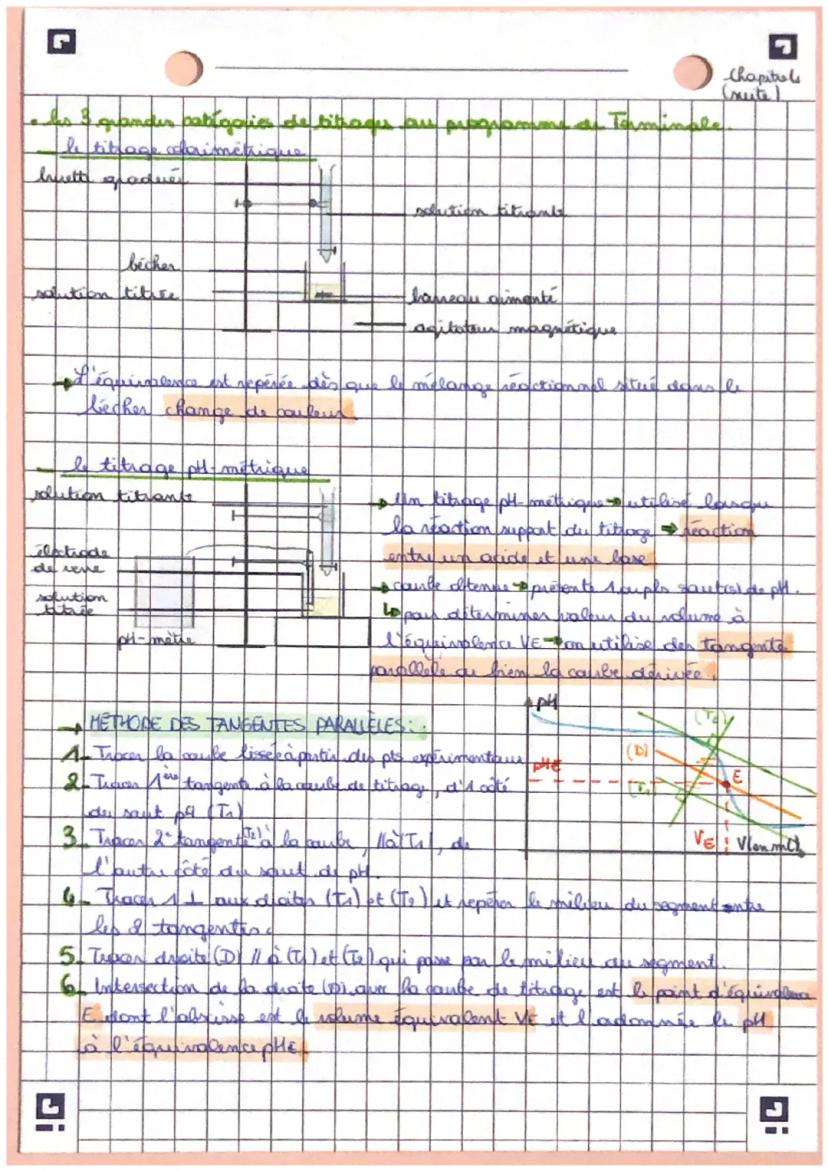 Chapitre 6
(suite)
• les 3 grandes catégories de titrages au programme de Terminale.
le titrage colorimétrique
burette graduée
solution titrante
bécher
solution titrée
barreau aimanté
agitateur magnétique
→ L'équivalence est repérée dès que le mélange réactionnel situé dans le
bécher change de couleur
le titrage pH-métrique
solution titrante
électrode
de verre
solution
titrée
pH-mètre
→ Un titrage pH-métrique → utilisé lorsque
la réaction support du titrage ⇒ réaction
entre un acide et une base
→ courbe obtenue → présente 1 ou pls saut(s) de pH.
↳ pour déterminer valeur du volume à
l'équivalence VE → on utilise des tangente
parallèle ou bien la courbe dérivée.
→ MÉTHODE DES TANGENTES PARALLÈLES:
1. Tracer la courbe lissée à partir des pts expérimentaux
2. Tracer 1ère tangente à la courbe de titrage, d'1 côté
du saut pH (T1)
3. Tracer 2e tangente (T2) à la courbe, // à (T1), de
l'autre côté du saut de pH.
4. Tracer 1 ⊥ aux droites (T1) et (T2) et repérer le milieu du segment entre
les 2 tangentes.
5. Tracer droite (D) // à (T1) et (T2) qui passe par le milieu du segment.
6. Intersection de la droite (D) avec la courbe de titrage est le point d'équivalence
E dont l'abscisse est le volume équivalent VE et l'ordonnée le pH
à l'équivalence pHE.
pH
(T2)
(D)
pHE
E
(T1)
VE
V(en mL)